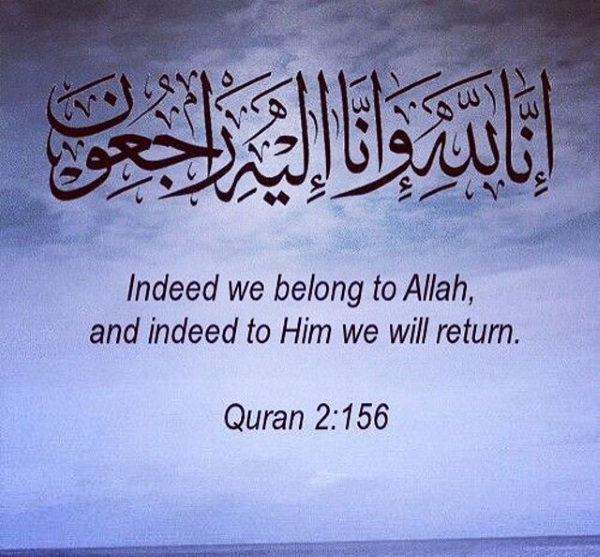 إِنَّا لِلَّهِ وَإِنَّا إِلَيْهِ رَاجِعُونَ
Indeed we belong to Allah,
and indeed to Him we will return.
Quran 2:156